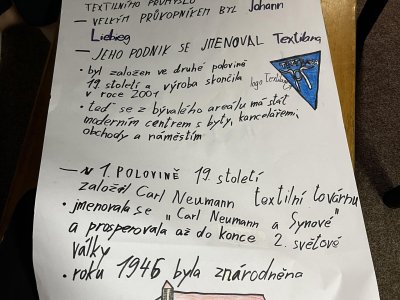 TEXTILNÍHO PRŮMYSLU
— VELKÝM PRŮKOPNÍKEM BYL Johann
Liebieg
— JEHO PODNIK SE JMENOVAL Textilana
• byl založen ve druhé polovině
19. století a výroba skončila
v roce 2001
logo Textilany
• teď se z bývalého areálu má stát
moderním centrem s byty, kancelářemi,
obchody a náměstím
— V 1. POLOVINĚ 19. století
založil Carl Neumann textilní továrnu
• jmenovala se „Carl Neumann a Synové"
a prosperovala až do konce 2. světové
války
• roku 1946 byla znárodněna